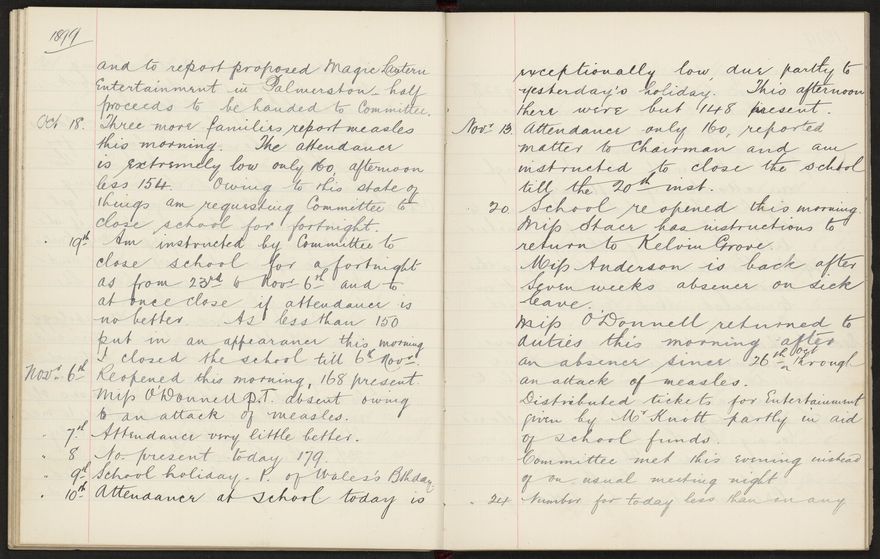 1899
and to report proposed Magic Lantern
Entertainment in Palmerston - half
proceeds to be handed to Committee.
Oct 18. Three more families report measles
this morning. The attendance
is extremely low only 160, afternoon
less 154. Owing to this state of
things am requesting Committee to
close school for fortnight.
" 19th Am instructed by Committee to
close school for a fortnight
as from 23rd to Novr 6th and to
at once close if attendance is
no better. As less than 150
put in an appearance this morning
I closed the school till 6th Novr.
Novr 6th Reopened this morning, 168 present.
Miss O'Donnell P.T. absent owing
to an attack of measles.
" 7th Attendance very little better.
" 8 No. present today 179.
" 9th School holiday - P. of Wales's Bthday.
" 10th Attendance at School today is
exceptionally low, due partly to
yesterday's holiday. This afternoon
there were but 148 present.
Novr 13 Attendance only 160, reported
matter to Chairman and am
instructed to close the school
till the 20th inst.
" 20 School reopened this morning.
Miss Stacr has instructions to
return to Kelvin Grove.
Miss Anderson is back after
seven weeks absence on sick
leave.
Miss O'Donnell returned to
duties this morning after
an absence since 26th Oct through
an attack of measles.
Distributed tickets for Entertainment
given by Mr Knott partly in aid
of school funds.
Committee met this evening instead
of on usual meeting night
" 24 Number for today less than on any